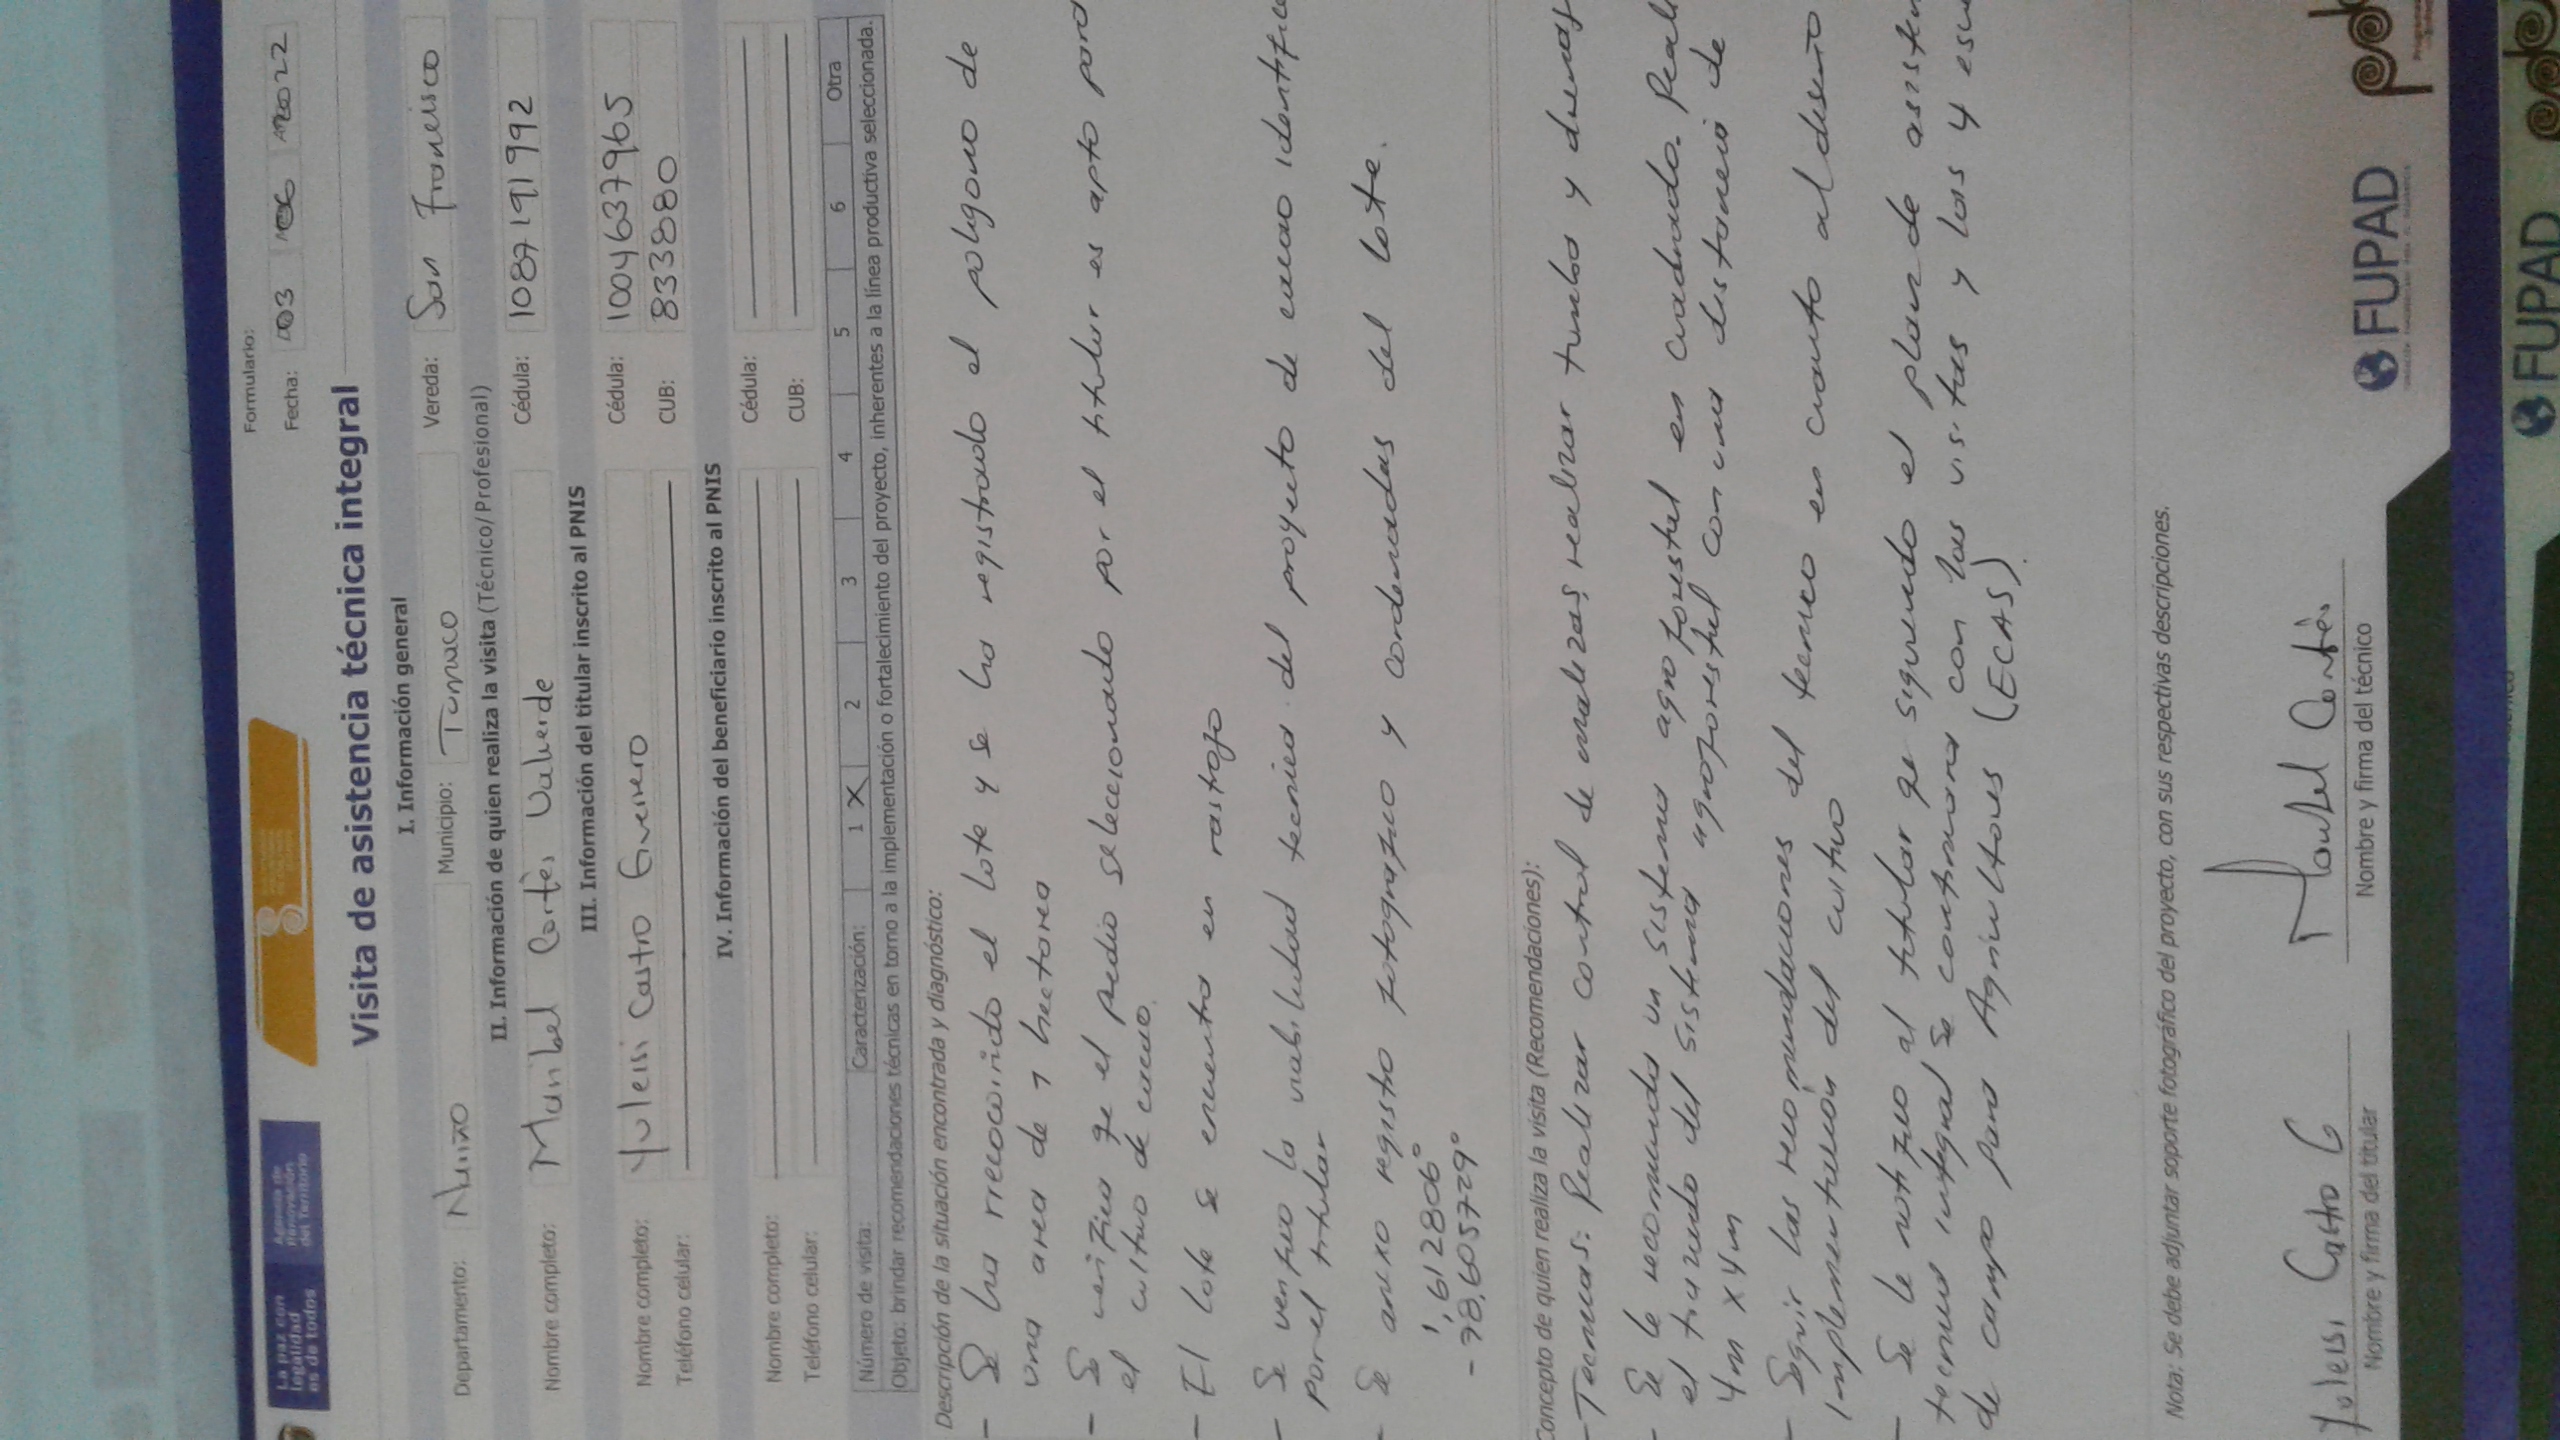 La paz con
legalidad
es de todos
Agencia de
Renovación
del Territorio
Formulario:
Fecha: D03 M06 A2022
Visita de asistencia técnica integral
I. Información general
Departamento: Nariño Municipio: Tumaco Vereda: San Francisco
II. Información de quien realiza la visita (Técnico/Profesional)
Nombre completo: Maribel Cortès Valverde Cédula: 1087191992
III. Información del titular inscrito al PNIS
Nombre completo: Yuleisi Castro Guerrero Cédula: 1004637965
Teléfono celular: CUB: 8338080
IV. Información del beneficiario inscrito al PNIS
Nombre completo: Cédula:
Teléfono celular: CUB:
Número de visita: Caracterización: 1 X 2 3 4 5 6 Otra
Objeto: brindar recomendaciones técnicas en torno a la implementación o fortalecimiento del proyecto, inherentes a la línea productiva seleccionada.
Descripción de la situación encontrada y diagnóstico:
- Se ha rrecocorrido el lote y se ha registrado el poligono de
una area de 1 hectarea
- Se verifica qe el predio seleccionado por el titular es apto para
el cultivo de cacao.
- El lote se encuentra en rastrojo
- Se verifico la viabilidad tecnica del proyecto de cacao identific
por el titular
- Se anexo registro fotografico y cordenadas del lote.
1,6128806°
-78,6057729°
Concepto de quien realiza la visita (Recomendaciones):
- Tecnicas: Realizar control de malezas, realizar tumba y
- Se le recomienda un sistema agro forestal en cuadrado. Reali
el trazado del sistema agroforestal con una distancia de
4m x 4m
- Seguir las recomendaciones del tecnico en cuanto al diseño
implementación del cultivo
- Se le notifico al titular qe siguiendo el plan de asisten
tecnica integral se continuara con las visitas y las 4 escu
de campo para Agricultores (ECAS).
Nota: Se debe adjuntar soporte fotográfico del proyecto, con sus respectivas descripciones.
Yuleisi Castro G
Maribel Cortès
Nombre y firma del titular
Nombre y firma del técnico
FUPAD
FUPAD